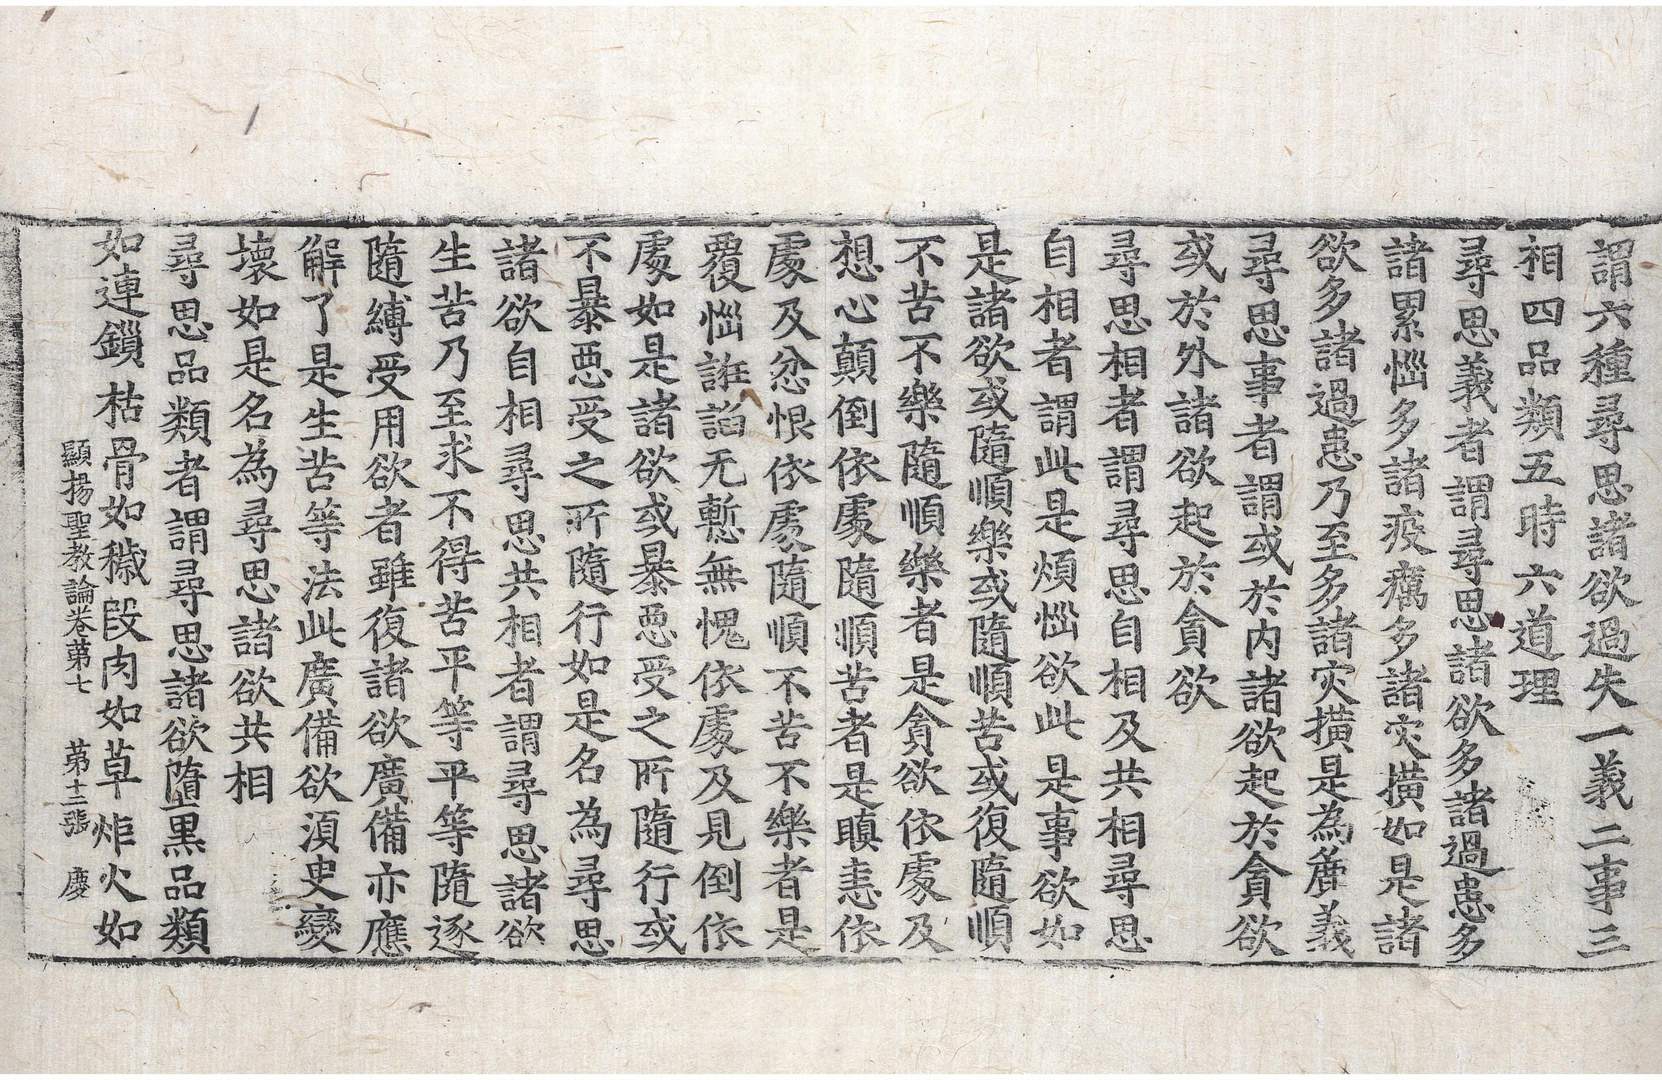 謂六種尋思諸欲過失一義二事三
相四品類五時六道理
尋思義者謂尋思諸欲多諸過患多
諸累惱多諸疫癘多諸灾撗如是諸
欲多諸過患乃至多諸灾撗是為麁義
尋思事者謂或於內諸欲起於貪欲
或於外諸欲起於貪欲
尋思相者謂尋思自相及共相尋思
自相者謂此是煩惱欲此是事欲如
是諸欲或隨順樂或隨順苦或復隨順
不苦不樂隨順樂者是貪欲依處及
想心顛倒依處隨順苦者是瞋恚依
處及忿恨依處隨順不苦不樂者是
覆惱誑諂无慙無愧依處及見倒依
處如是諸欲或暴惡受之所隨行或
不暴惡受之所隨行如是名為尋思
諸欲自相尋思共相者謂尋思諸欲
生苦乃至求不得苦平等平等隨逐
隨縛受用欲者雖復諸欲廣備亦應
解了是生苦等法此廣備欲湏臾變
壞如是名為尋思諸欲共相
尋思品類者謂尋思諸欲墮黑品類
如連鎖枯骨如穢段肉如草炬火如
顯揚聖教論卷苐七 苐十二張 慶